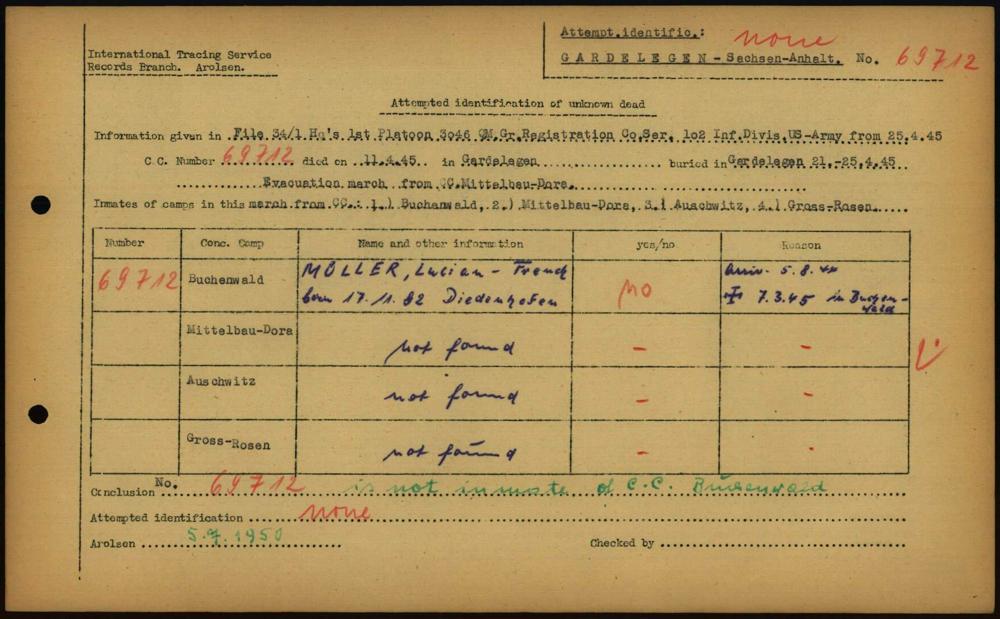 Attempt.identific.: none
International Tracing Service
Records Branch. Arolsen.
GARDELEGEN - Sachsen-Anhalt. No. 69712
Attempted identification of unknown dead
Information given in File 34/1 Hq's 1st Platoon 3046 QM.Gr.Registration Co.Ser. 1o2 Inf.Divis.US-Army from 25.4.45
C.C. Number 69712 died on 11.4.45 in Gardelegen buried in Gardelegen 21.-25.4.45
Evacuation march from CC.Mittelbau-Dora.
Inmates of camps in this march from CC.: 1.) Buchenwald, 2.) Mittelbau-Dora, 3.) Auschwitz, 4.) Gross-Rosen
Number Conc. Camp Name and other information yes/no Reason
69712 Buchenwald MÜLLER, Lucian - French no arriv. 5.8.44
born 17.11.82 Diedenhofen 7.3.45 in Buchen-
wald
Mittelbau-Dora not found - -
Auschwitz not found - -
Gross-Rosen not found - -
Conclusion No. 69712 is not inmate of C.C. Buchenwald
Attempted identification none
Arolsen 5.7.1950 Checked by